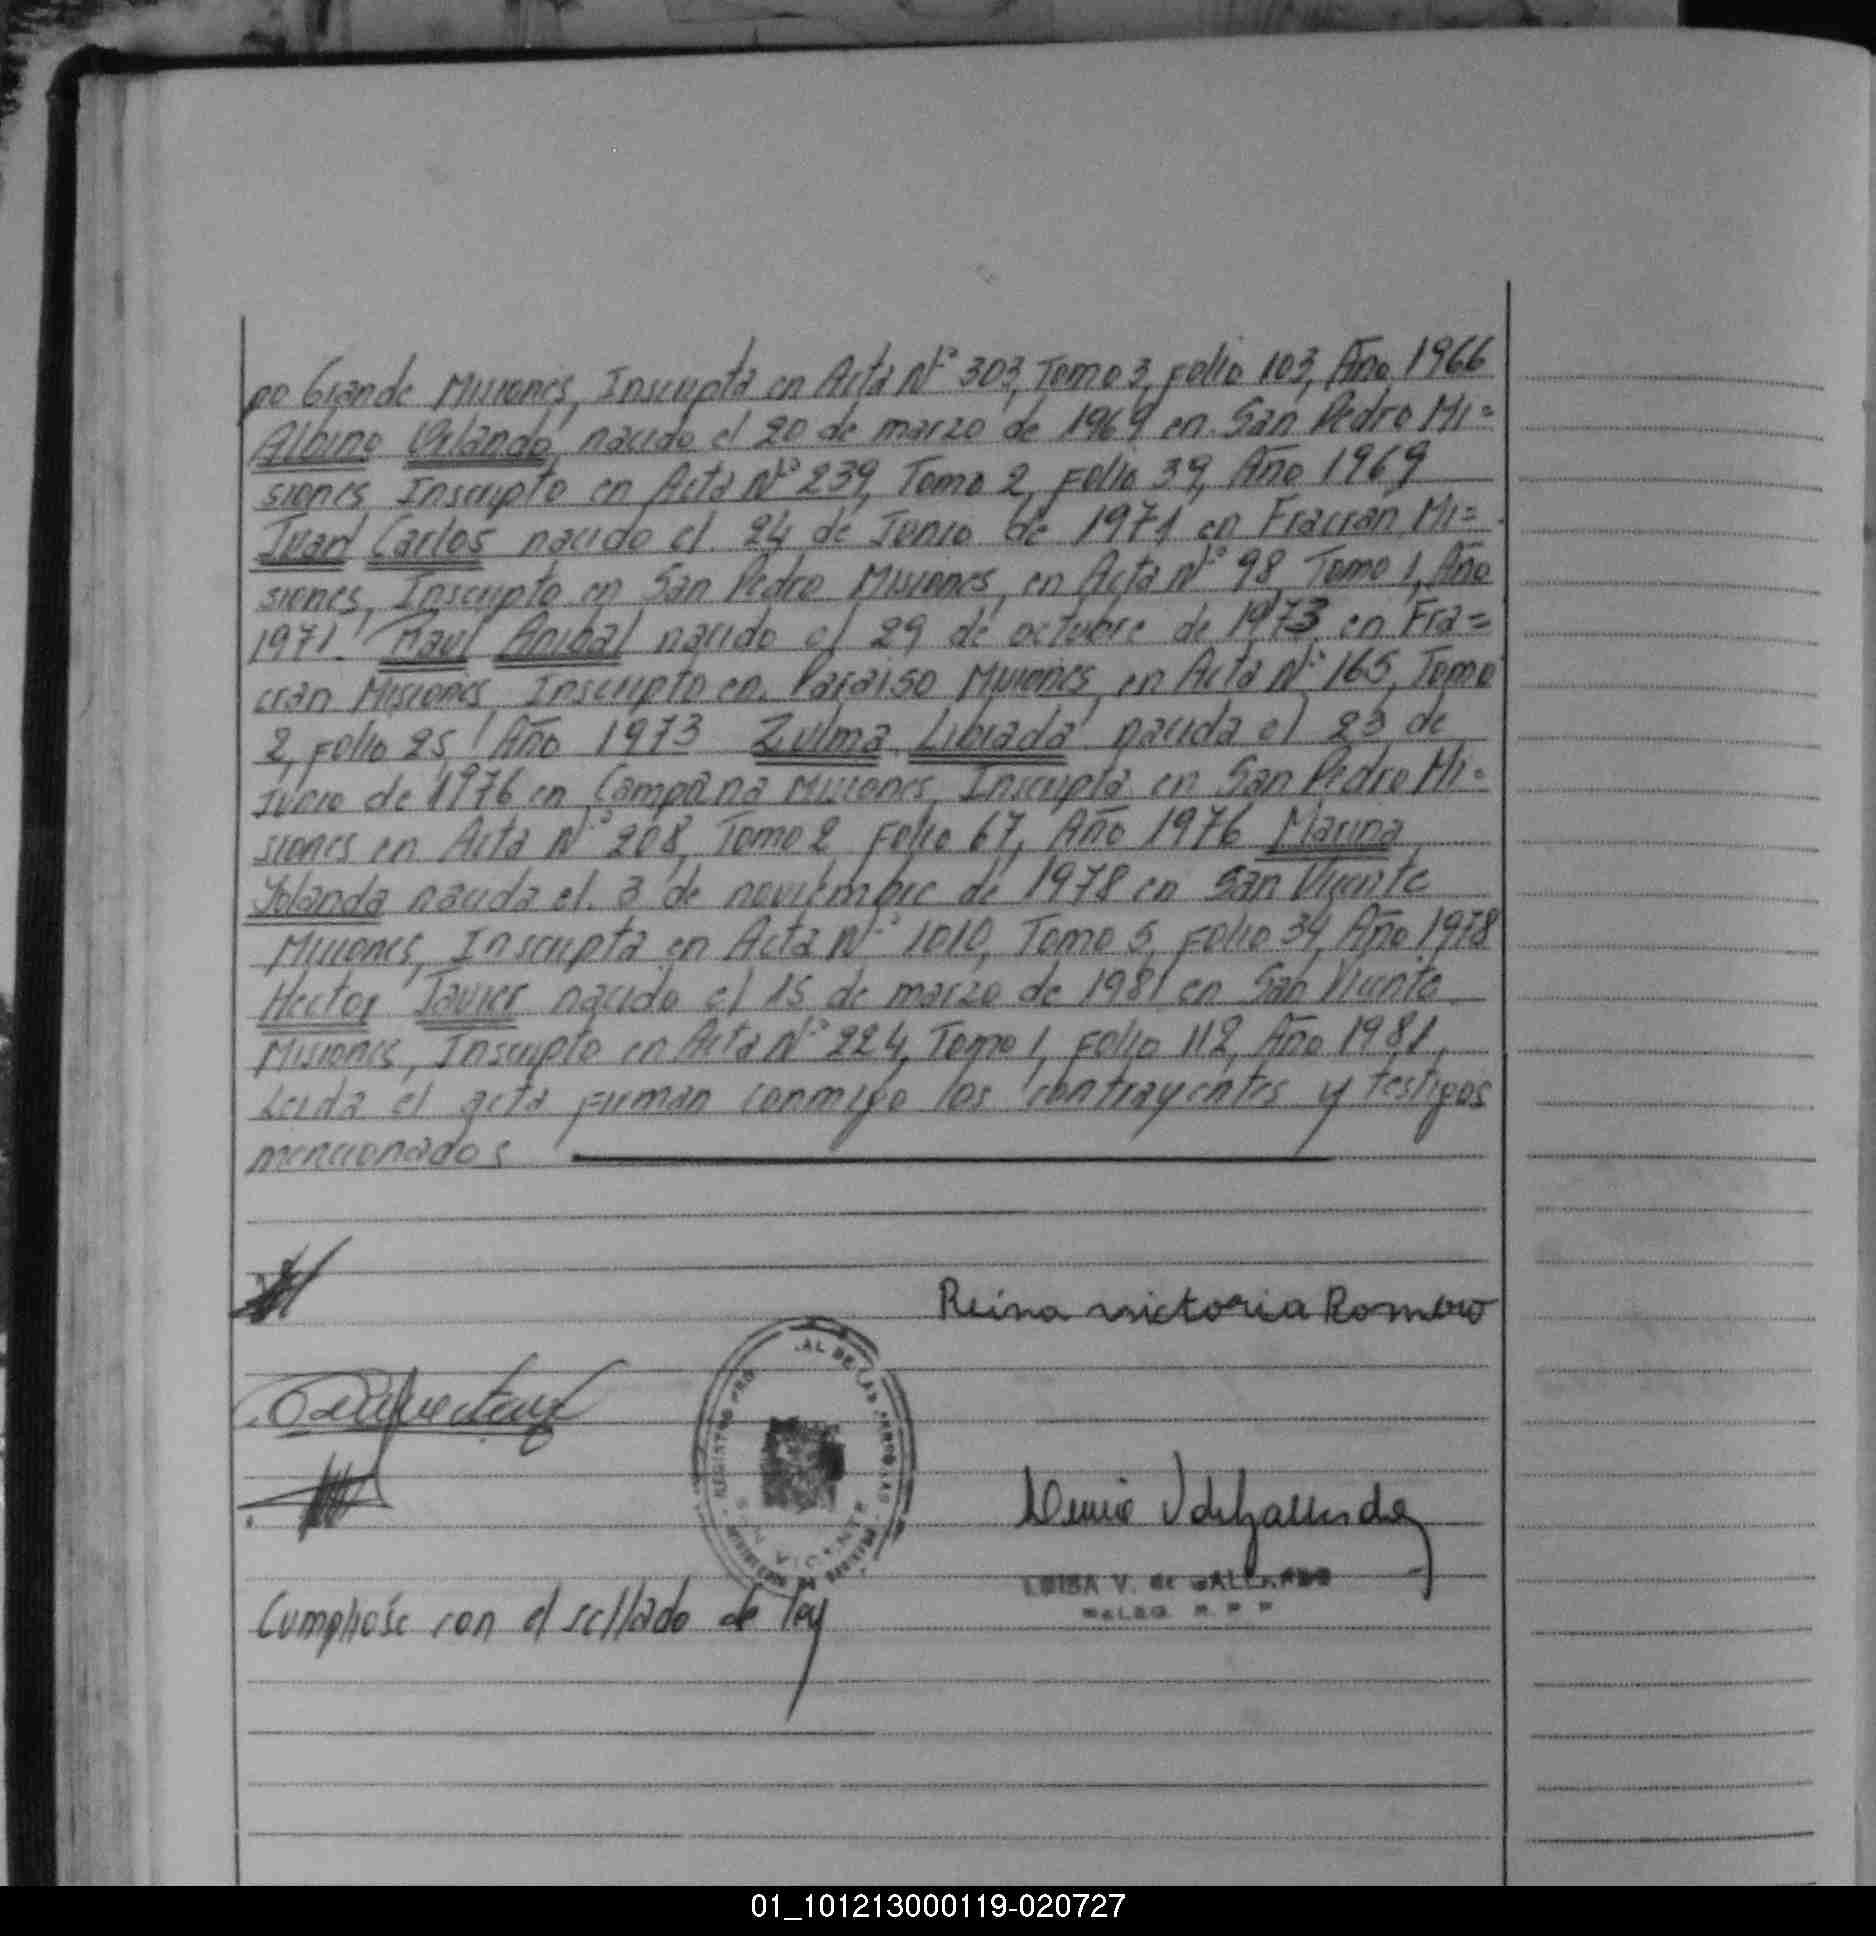 po Grande Misiones, Inscripta en Acta Nº 303, Tomo 3, Folio 103, Año 1966
Albino Orlando, nacido el 20 de marzo de 1969 en San Pedro Mi=
siones Inscripto en Acta Nº 239, Tomo 2, Folio 39, Año 1969
Juan Carlos nacido el 24 de Junio de 1971 en Fracran, Mi=
siones, Inscripto en San Pedro Misiones, en Acta Nº 98 Tomo 1, Año
1971. Raul Anibal nacido el 29 de octubre de 1973 en Fra=
cran Misiones, Inscripto en Paraiso Misiones, en Acta Nº 165, Tomo
2, Folio 25, Año 1973 Zulma Librada nacida el 23 de
Junio de 1976 en Campana Misiones, Inscripta en San Pedro Mi=
siones en Acta Nº 208, Tomo 2 Folio 67, Año 1976 Marina
Yolanda nacida el 3 de noviembre de 1978 en San Vicente
Misiones, Inscripta en Acta Nº 1010, Tomo 5, Folio 34, Año 1978
Hector Javier nacido el 15 de marzo de 1981 en San Vicente
Misiones, Inscripto en Acta Nº 224, Tomo 1, Folio 112, Año 1981,
Leida el acta firman conmigo los contrayentes y testigos
mencionados
Reina victoria Romero
REGISTRO PRO AL DE LAS PERSONAS
SAN VICENTE
LUISA V. de GALLARDO
DELEG. R. P. P
Cumpliose con el sellado de ley
01_101213000119-020727